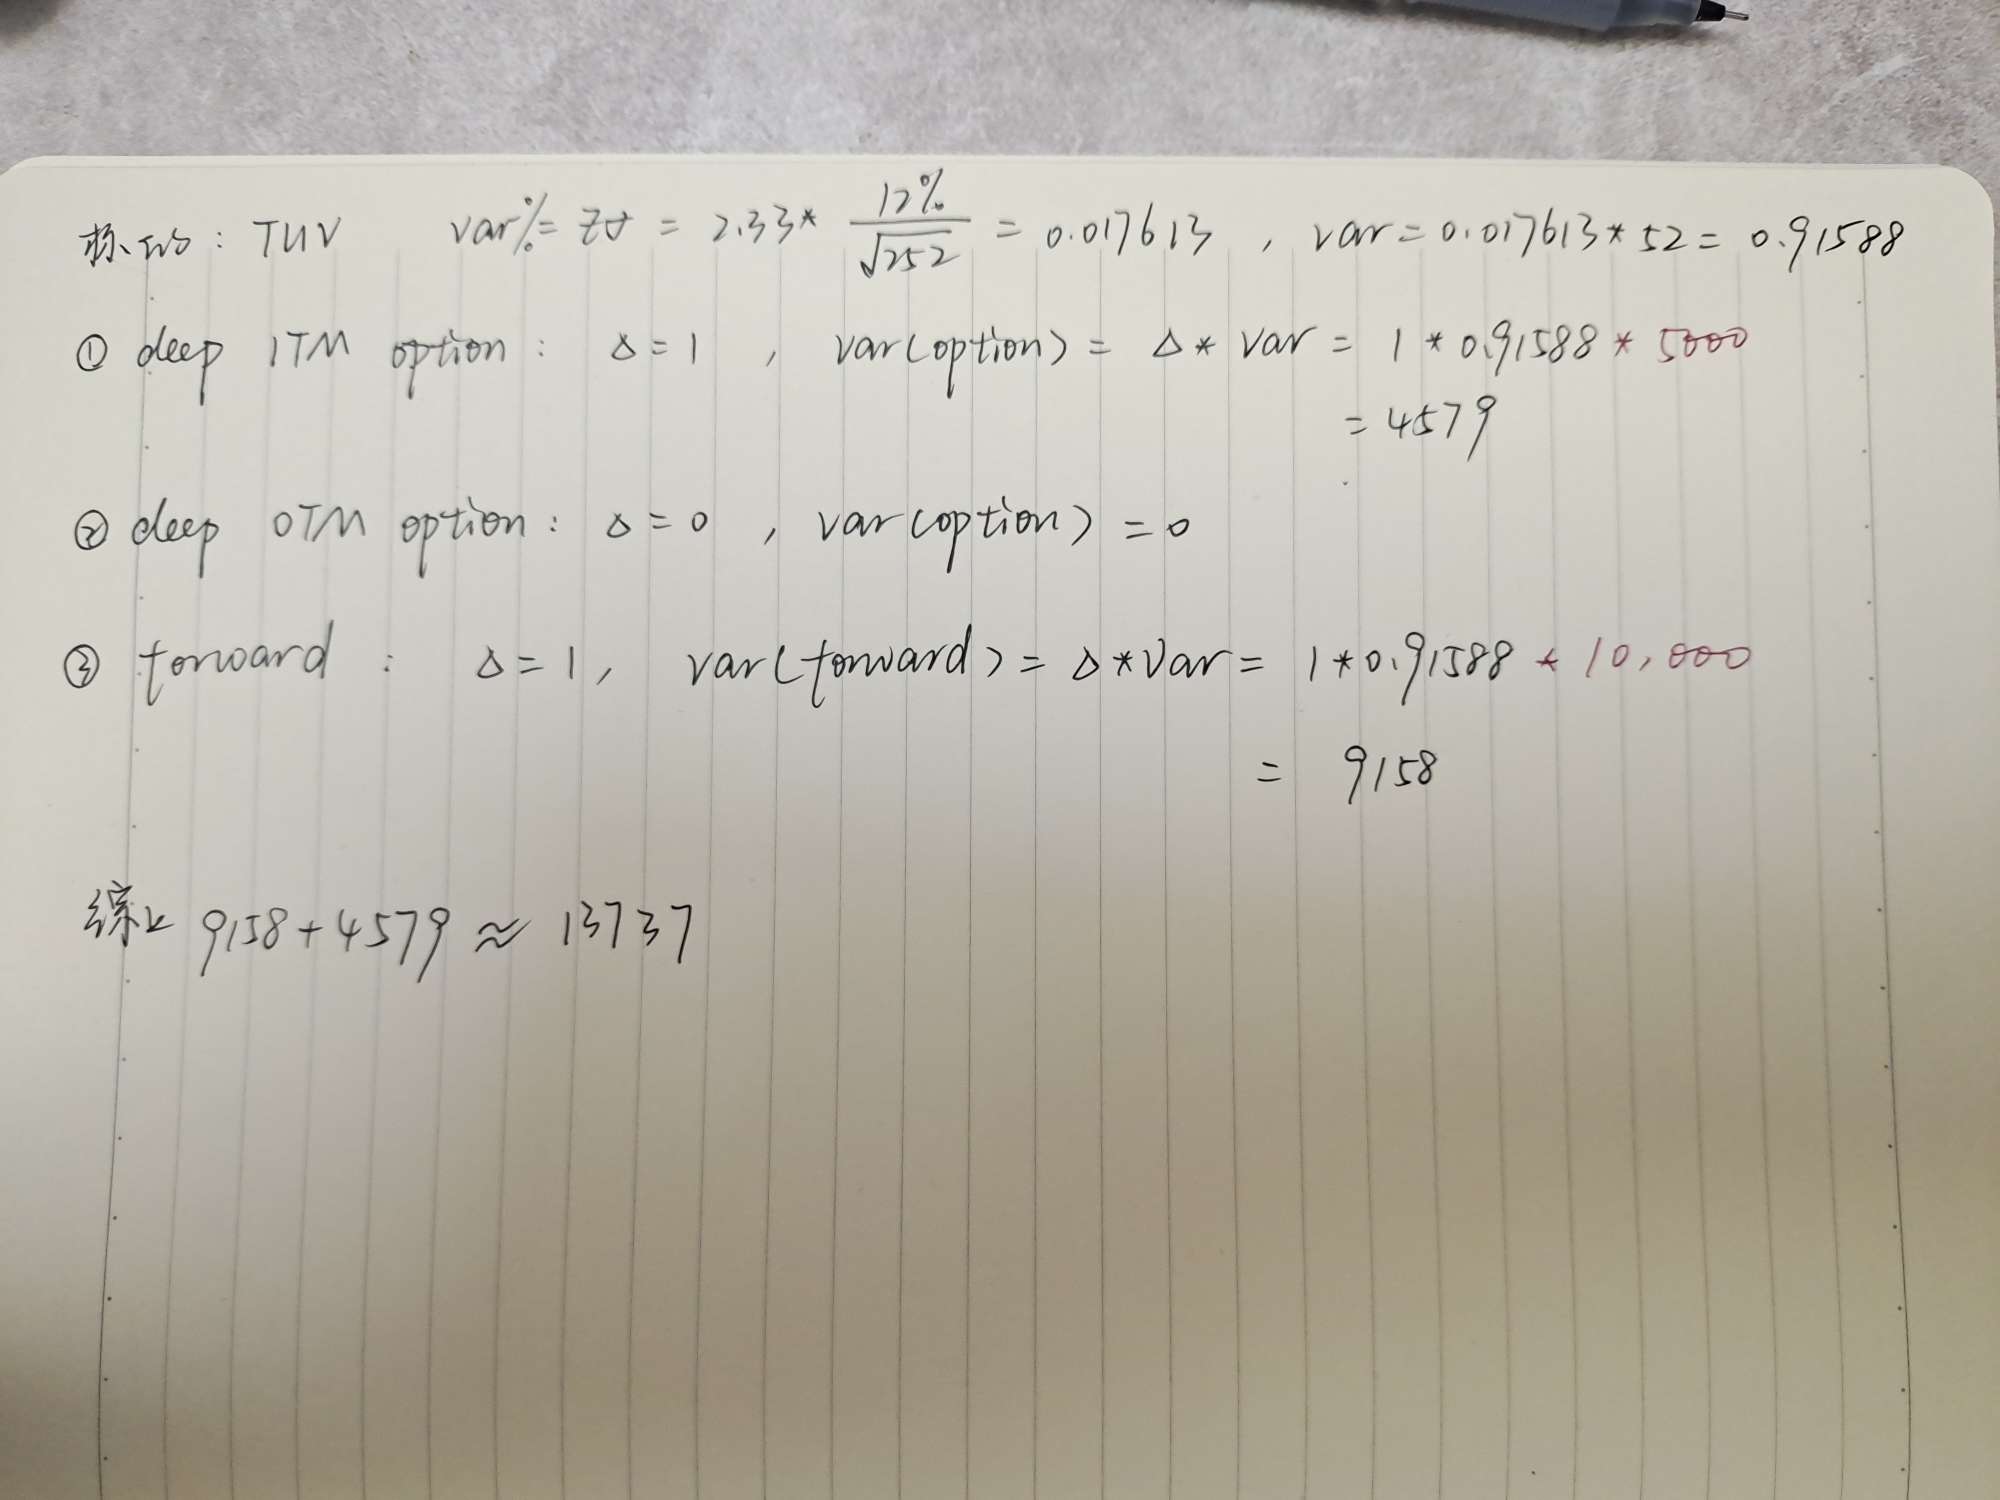 标的: TUV var%= zσ = 2.33* 12%/√252 = 0.017613 , var = 0.017613 * 52 = 0.91588
① deep ITM option: Δ=1 , var(option) = Δ* var = 1 * 0.91588 * 5000
= 4579
② deep OTM option: Δ=0 , var(option) =0
③ forward : Δ=1, var(forward) = Δ*var = 1*0.91588 * 10,000
= 9158
综上 9158+4579 ≈ 13737